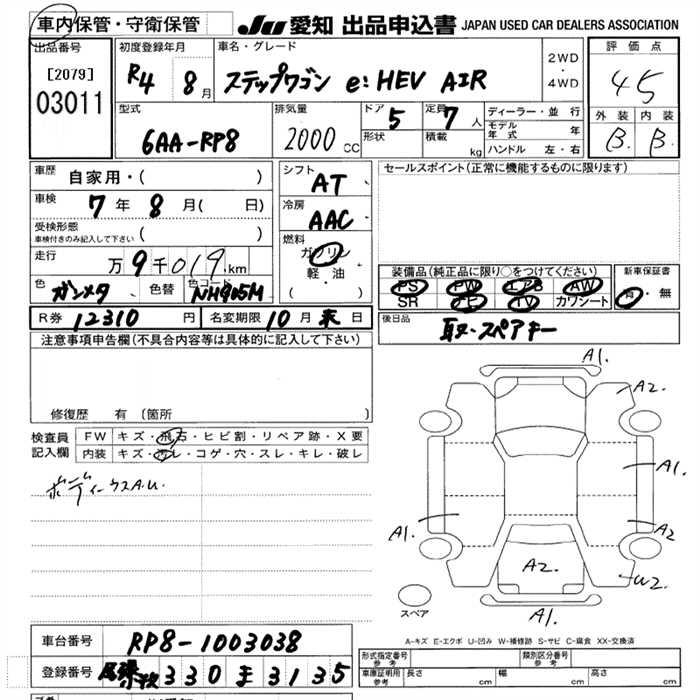 車内保管・守衛保管 JU 愛知 出品申込書 JAPAN USED CAR DEALERS ASSOCIATION
出品番号 初度登録年月 車名・グレード 2WD・4WD 評価点
[2079] R4 8月 ステップワゴン e:HEV AIR 45
03011
型式 排気量 ドア 5 定員 7人 ディーラー・並行 外装 内装
6AA-RP8 2000cc 形状 積載 kg モデル年式 年 B. B.
ハンドル 左・右
車歴 自家用・( ) シフト AT セールスポイント(正常に機能するものに限ります)
車検 7年 8月( 日) 冷房 AAC
受検形態 車検付きのみ記入して下さい ( ) 燃料 ガソリン
走行 万9千019km 軽油 装備品(純正品に限り○をつけてください) 新車保証書
色 ガンメタ 色替 色コード NH905M ( ・ ) PS PW エアB AW 有・無
SR ナビ TV カワシート
R券 12310円 名変期限 10月末日 後日品 取・スペアキー
注意事項申告欄(不具合内容等は具体的に記入して下さい)
修復歴 有(箇所 )
検査員記入欄 FW キズ・飛石・ヒビ割・リペア跡・X要
内装 キズ・汚レ・コゲ・穴・スレ・キレ・破レ
ボディーウスA.U.
A1.
A2.
A1.
A1. A2
A2. W2.
A1.
スペア
A-キズ E-エクボ U-凹み W-補修跡 S-サビ C-腐食 XX-交換済
車台番号 RP8-1003038 形式指定番号 参考 類別区分番号 参考
登録番号 尾張小牧 330 3135 車庫証明用 参考 長さ cm 幅 cm 高さ cm